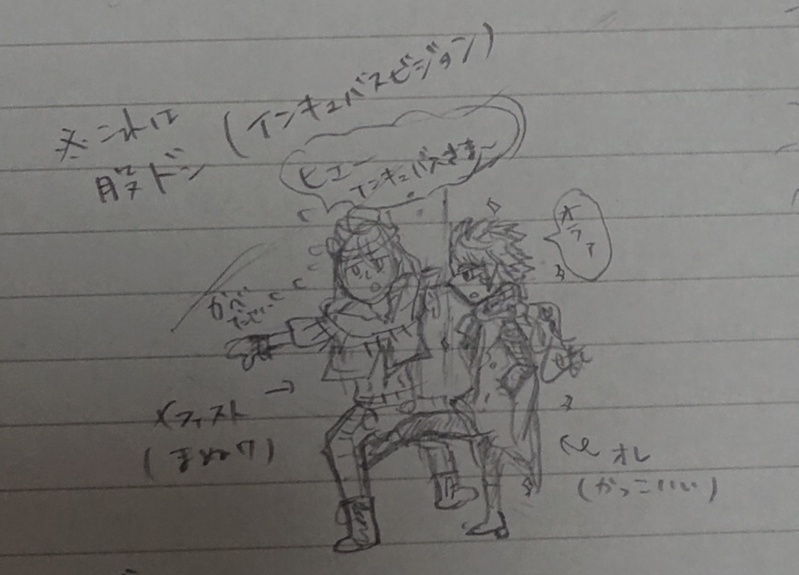 ※これは
股ドン
(インキュバスビジョン)
ヒエー
インキュバスさま〜
オラァ
メフィスト
(まぬけ)
オレ
(かっこいい)